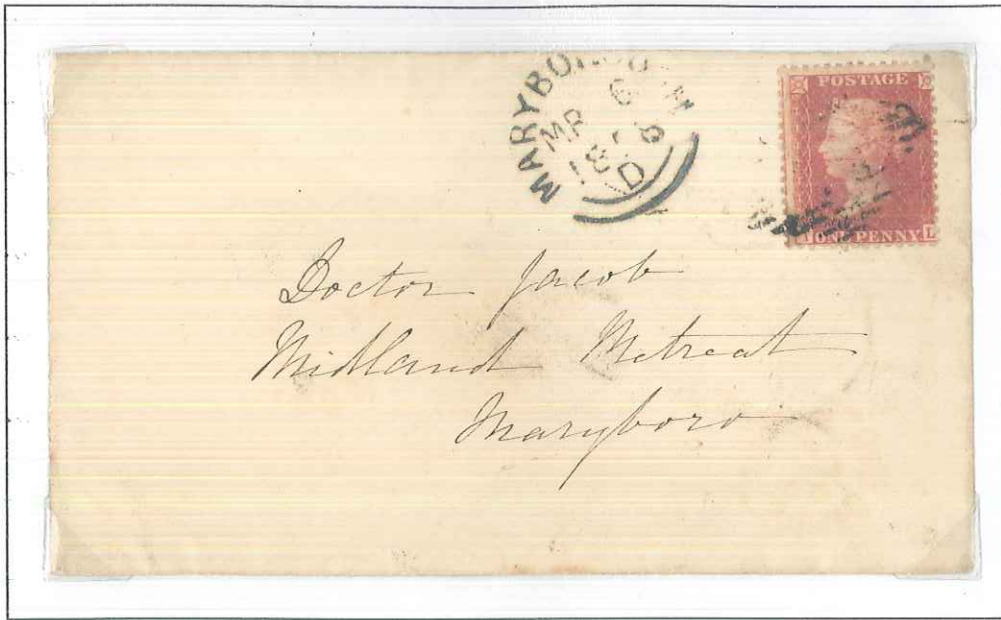 MARYBOROUGH
MR 6
18
D
POSTAGE
ONE PENNY
L
Doctor Jacob
Midland Retreat
Maryboro